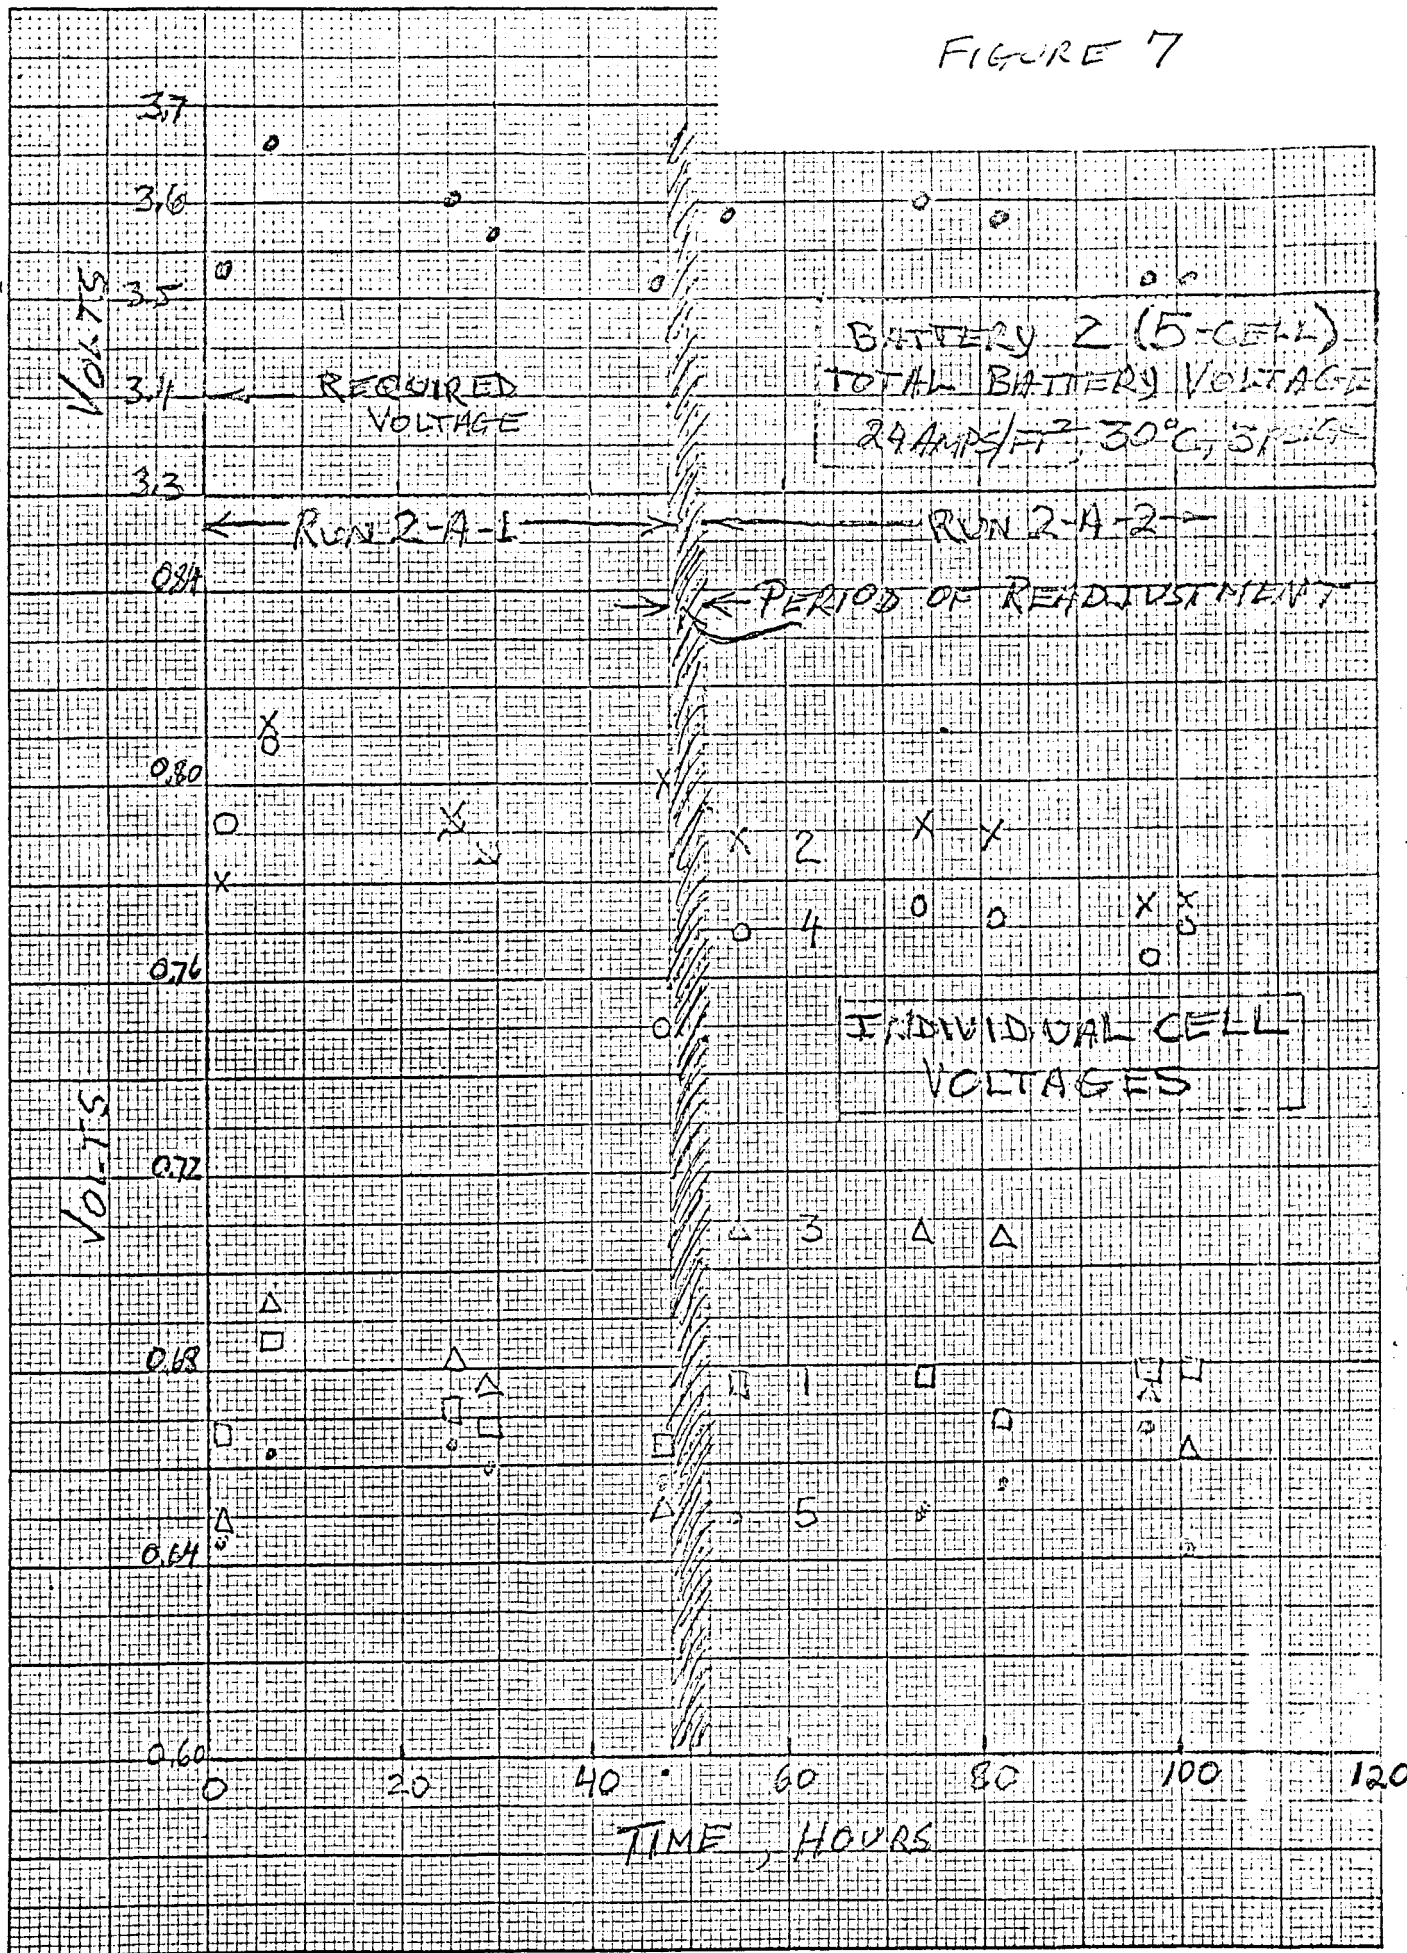 FIGURE 7
3.7
3.6
3.5
3.4
3.3
VOLTS
REQUIRED
VOLTAGE
BATTERY 2 (5-CELL)
TOTAL BATTERY VOLTAGE
24 AMPS/FT², 30°C,
RUN 2-A-1
RUN 2-A-2
PERIOD OF READJUSTMENT
0.84
0.80
0.76
0.72
0.68
0.64
0.60
VOLTS
2
4
3
1
5
INDIVIDUAL CELL
VOLTAGES
0 20 40 60 80 100 120
TIME, HOURS